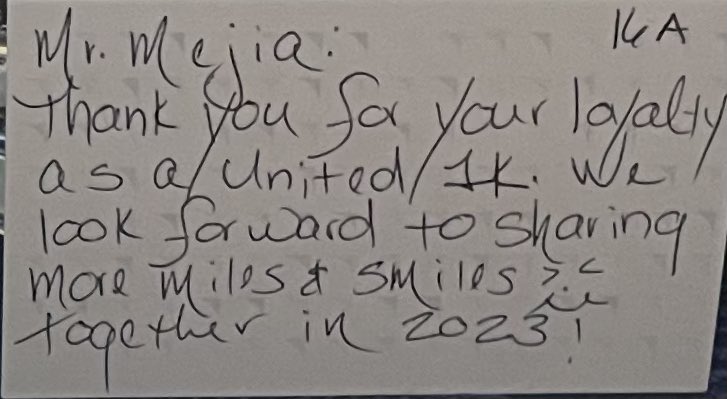 Mr. Mejia: 16A
Thank you for your loyalty
as a United 1K. We
look forward to sharing
more miles & smiles
together in 2023!